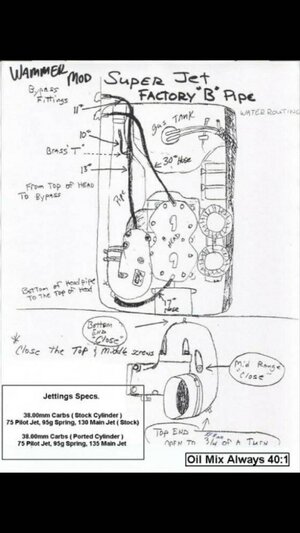 WAMMER MOD
SUPER JET
FACTORY "B" PIPE
BYPASS
FITTINGS
WATER ROUTING
11"
GAS TANK
10"
BRASS "T"
30" HOSE
13"
FROM TOP OF HEAD
TO BYPASS
PIPE
HEAD
Bottom of Headpipe
To the Top of Head
17"
HOSE
BOTTOM
END
"Close"
* Close the Top & Middle screws
Mid Range
"Close"
TOP END
OPEN TO 3/4 OF A TURN
Jettings Specs.
38.00mm Carbs ( Stock Cylinder )
75 Pilot Jet, 95g Spring, 130 Main Jet ( Stock)
38.00mm Carbs ( Ported Cylinder )
75 Pilot Jet, 95g Spring, 135 Main Jet
Oil Mix Always 40:1